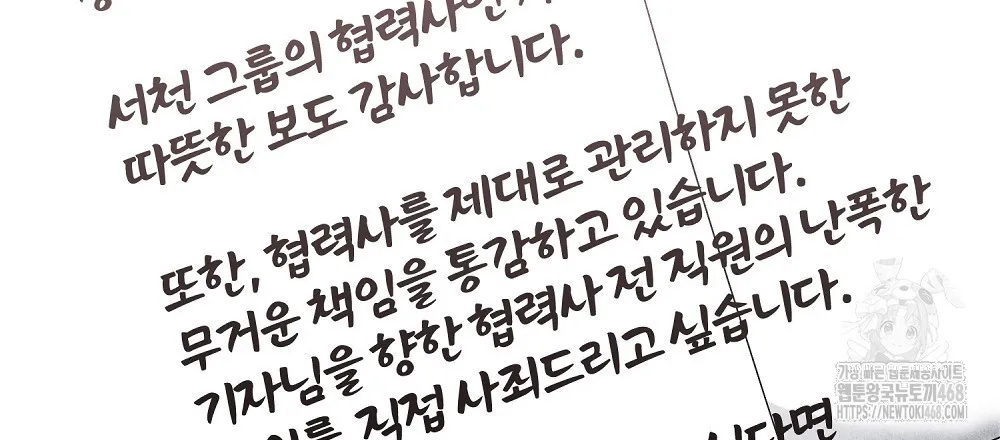 서천 그룹의 협력사인
따뜻한 보도 감사합니다.
또한, 협력사를 제대로 관리하지 못한
무거운 책임을 통감하고 있습니다.
기자님을 향한 협력사 전 직원의 난폭한
직접 사죄드리고 싶습니다.
가장 빠른 웹툰제공사이트
웹툰왕국뉴토끼468
HTTPS://NEWTOKI468.COM